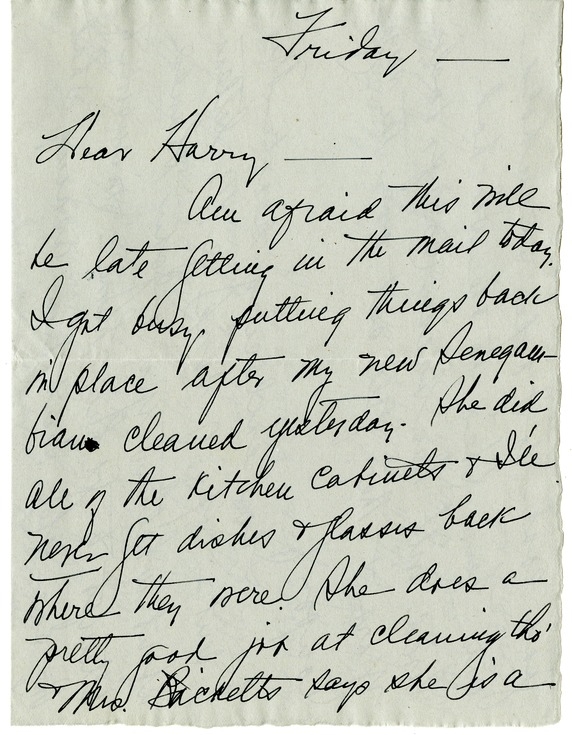 Friday —
Dear Harry —
Am afraid this will
be late getting in the mail today.
I got busy putting things back
in place after my new Senegam-
bian cleaned yesterday. She did
all of the kitchen cabinets & I'll
never get dishes & glasses back
where they were. She does a
pretty good job at cleaning tho'
& Mrs. Ricketts says she is a